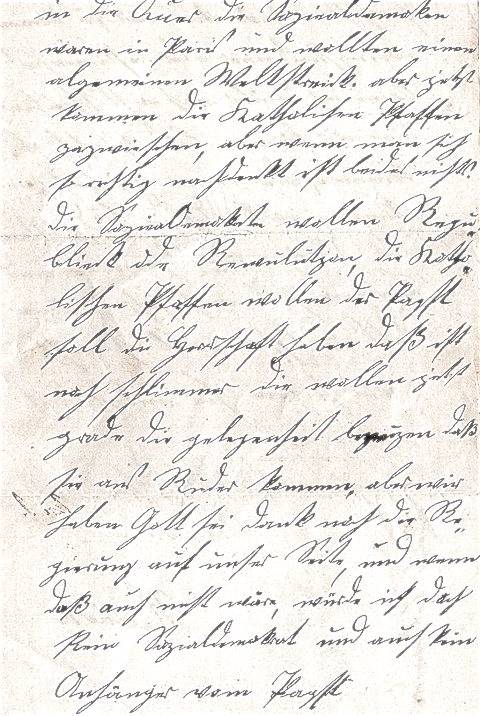 in die Quer die Soziealdemoken
waren in Paris und wollten einen
algemeinen Weltstreick. aber jetst
kommen die Katholisen Pfaffen
zazwieschen, aber wenn man sich
so rechtig nachdenkt ist beides nichts.
die Sozieealdemokate wollen Repu-
blieck ode Rewulutzon, die Katho-
lischen Pfaffen wollen der Papst
soll die Herrschaft haben daß ist
noch schlimmer die wollen jetst
grade die gelegenheit benutzen daß
sie ans Ruder kommen, aber wir
haben Gott sei dank noch die Re-
gierung auf unser Seite, und wenn
daß auch nicht wäre, würde ich doch
kein Sozialdemokrat und auch kein
Anhänger vom Papst